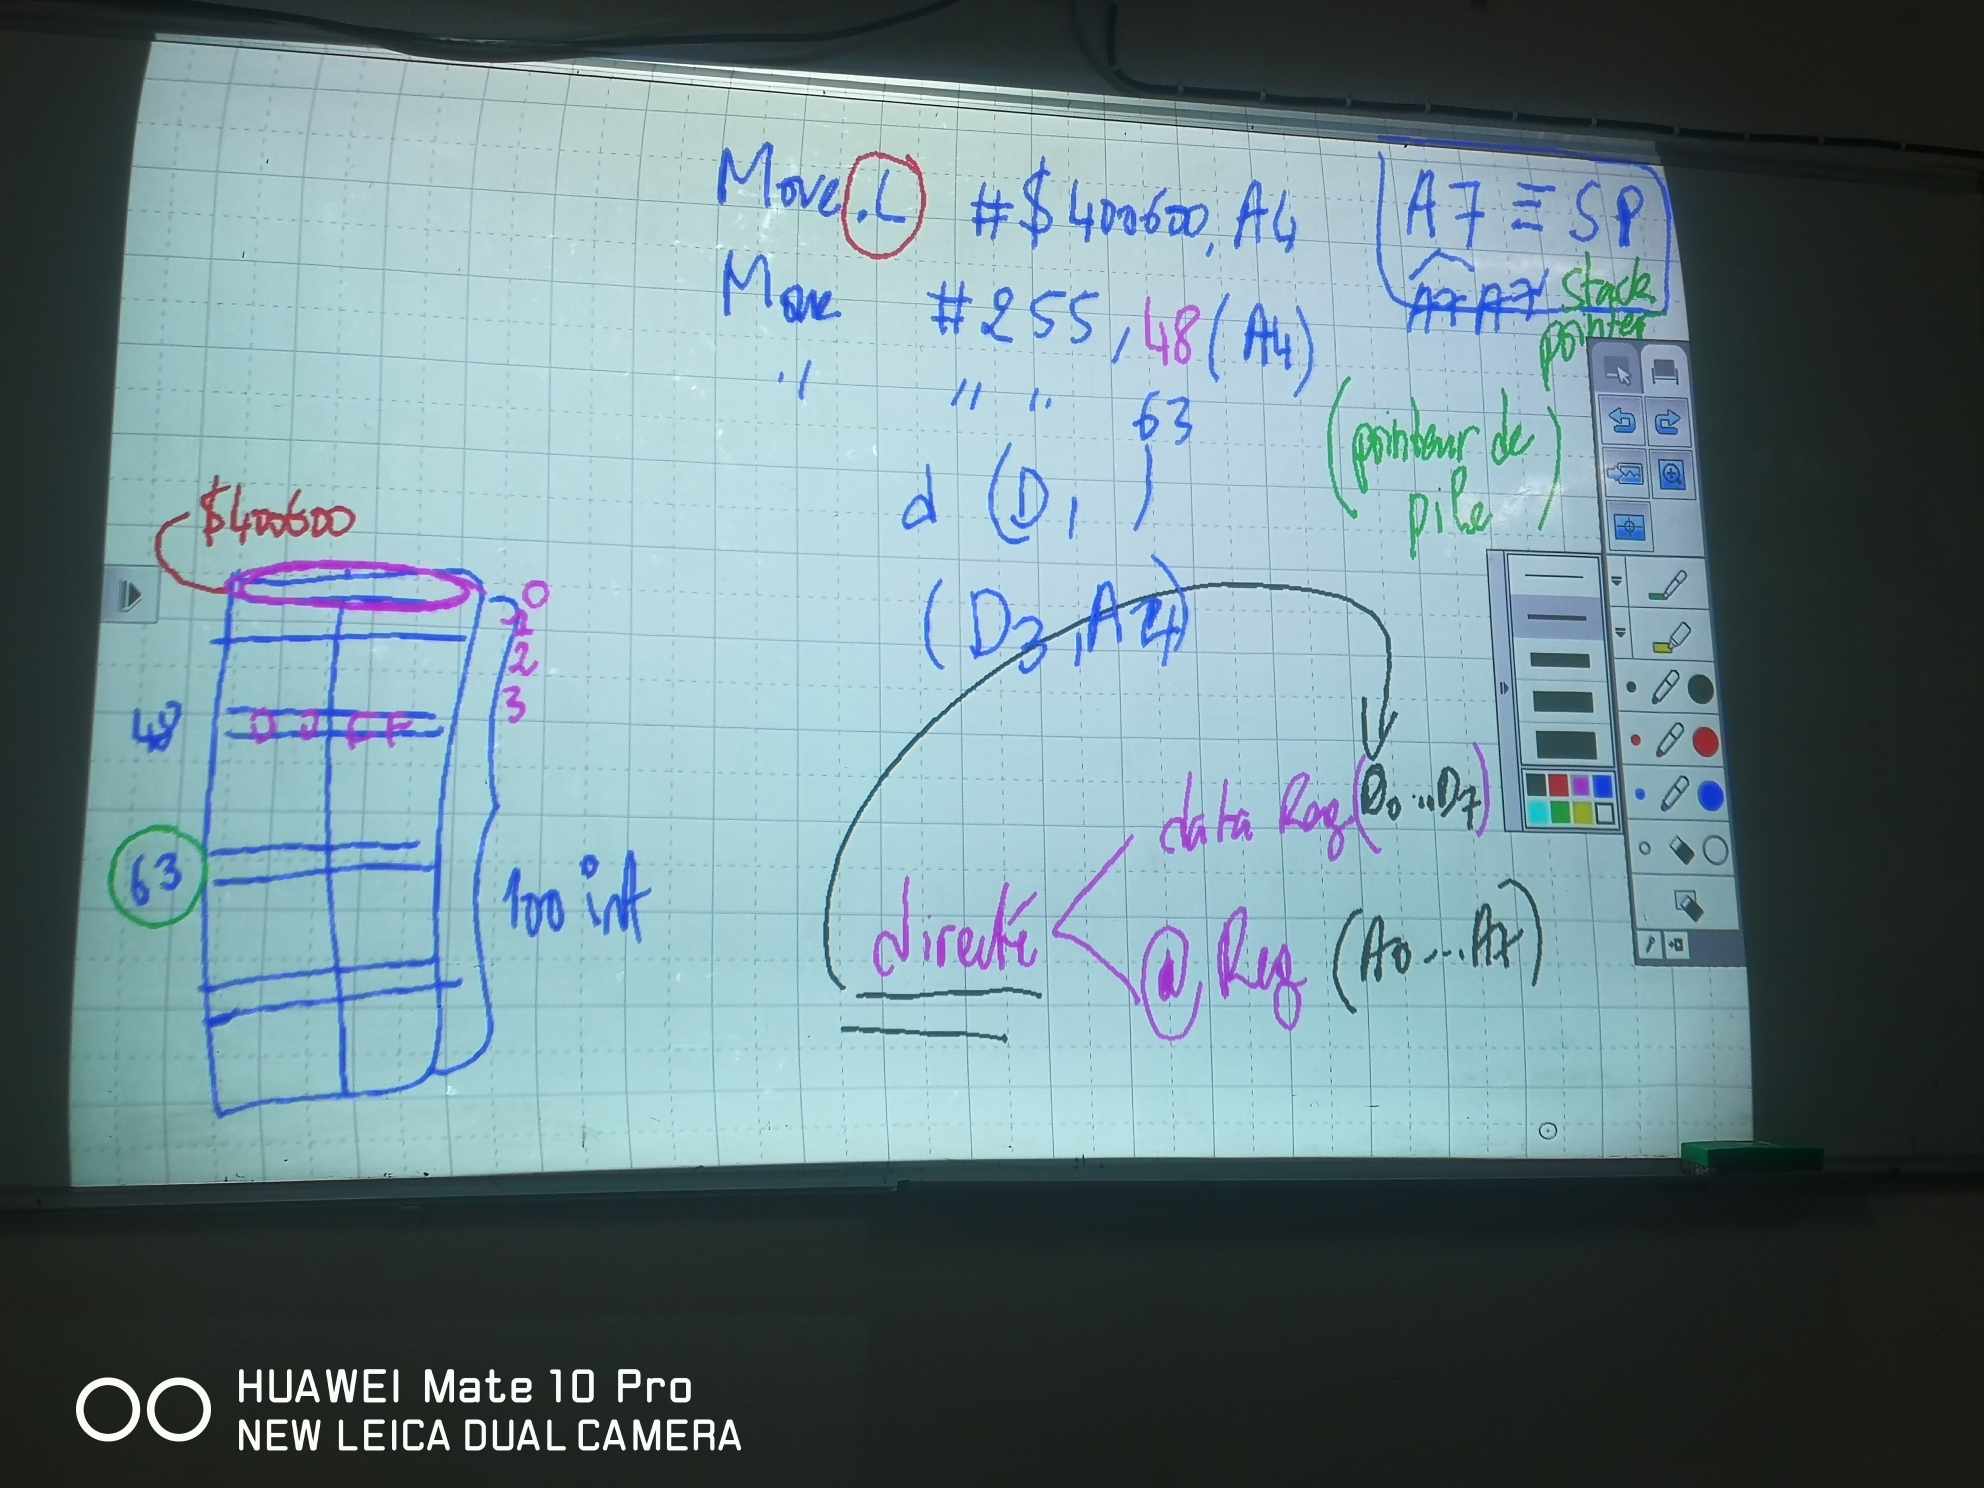 Move.L #$400600, A4
Move #255, 48(A4)
" " " 63
d (D, )
(D3, A4)
A7 ≡ SP
A7 A7' stack
pointer
(pointeur de
pile)
$400600
0
1
2
3
48
00FF
63
100 int
directe
data Reg (D0...D7)
@ Reg (A0...A7)
HUAWEI Mate 10 Pro
NEW LEICA DUAL CAMERA